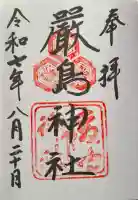 奉拝
嚴島神社
令和七年八月二十日